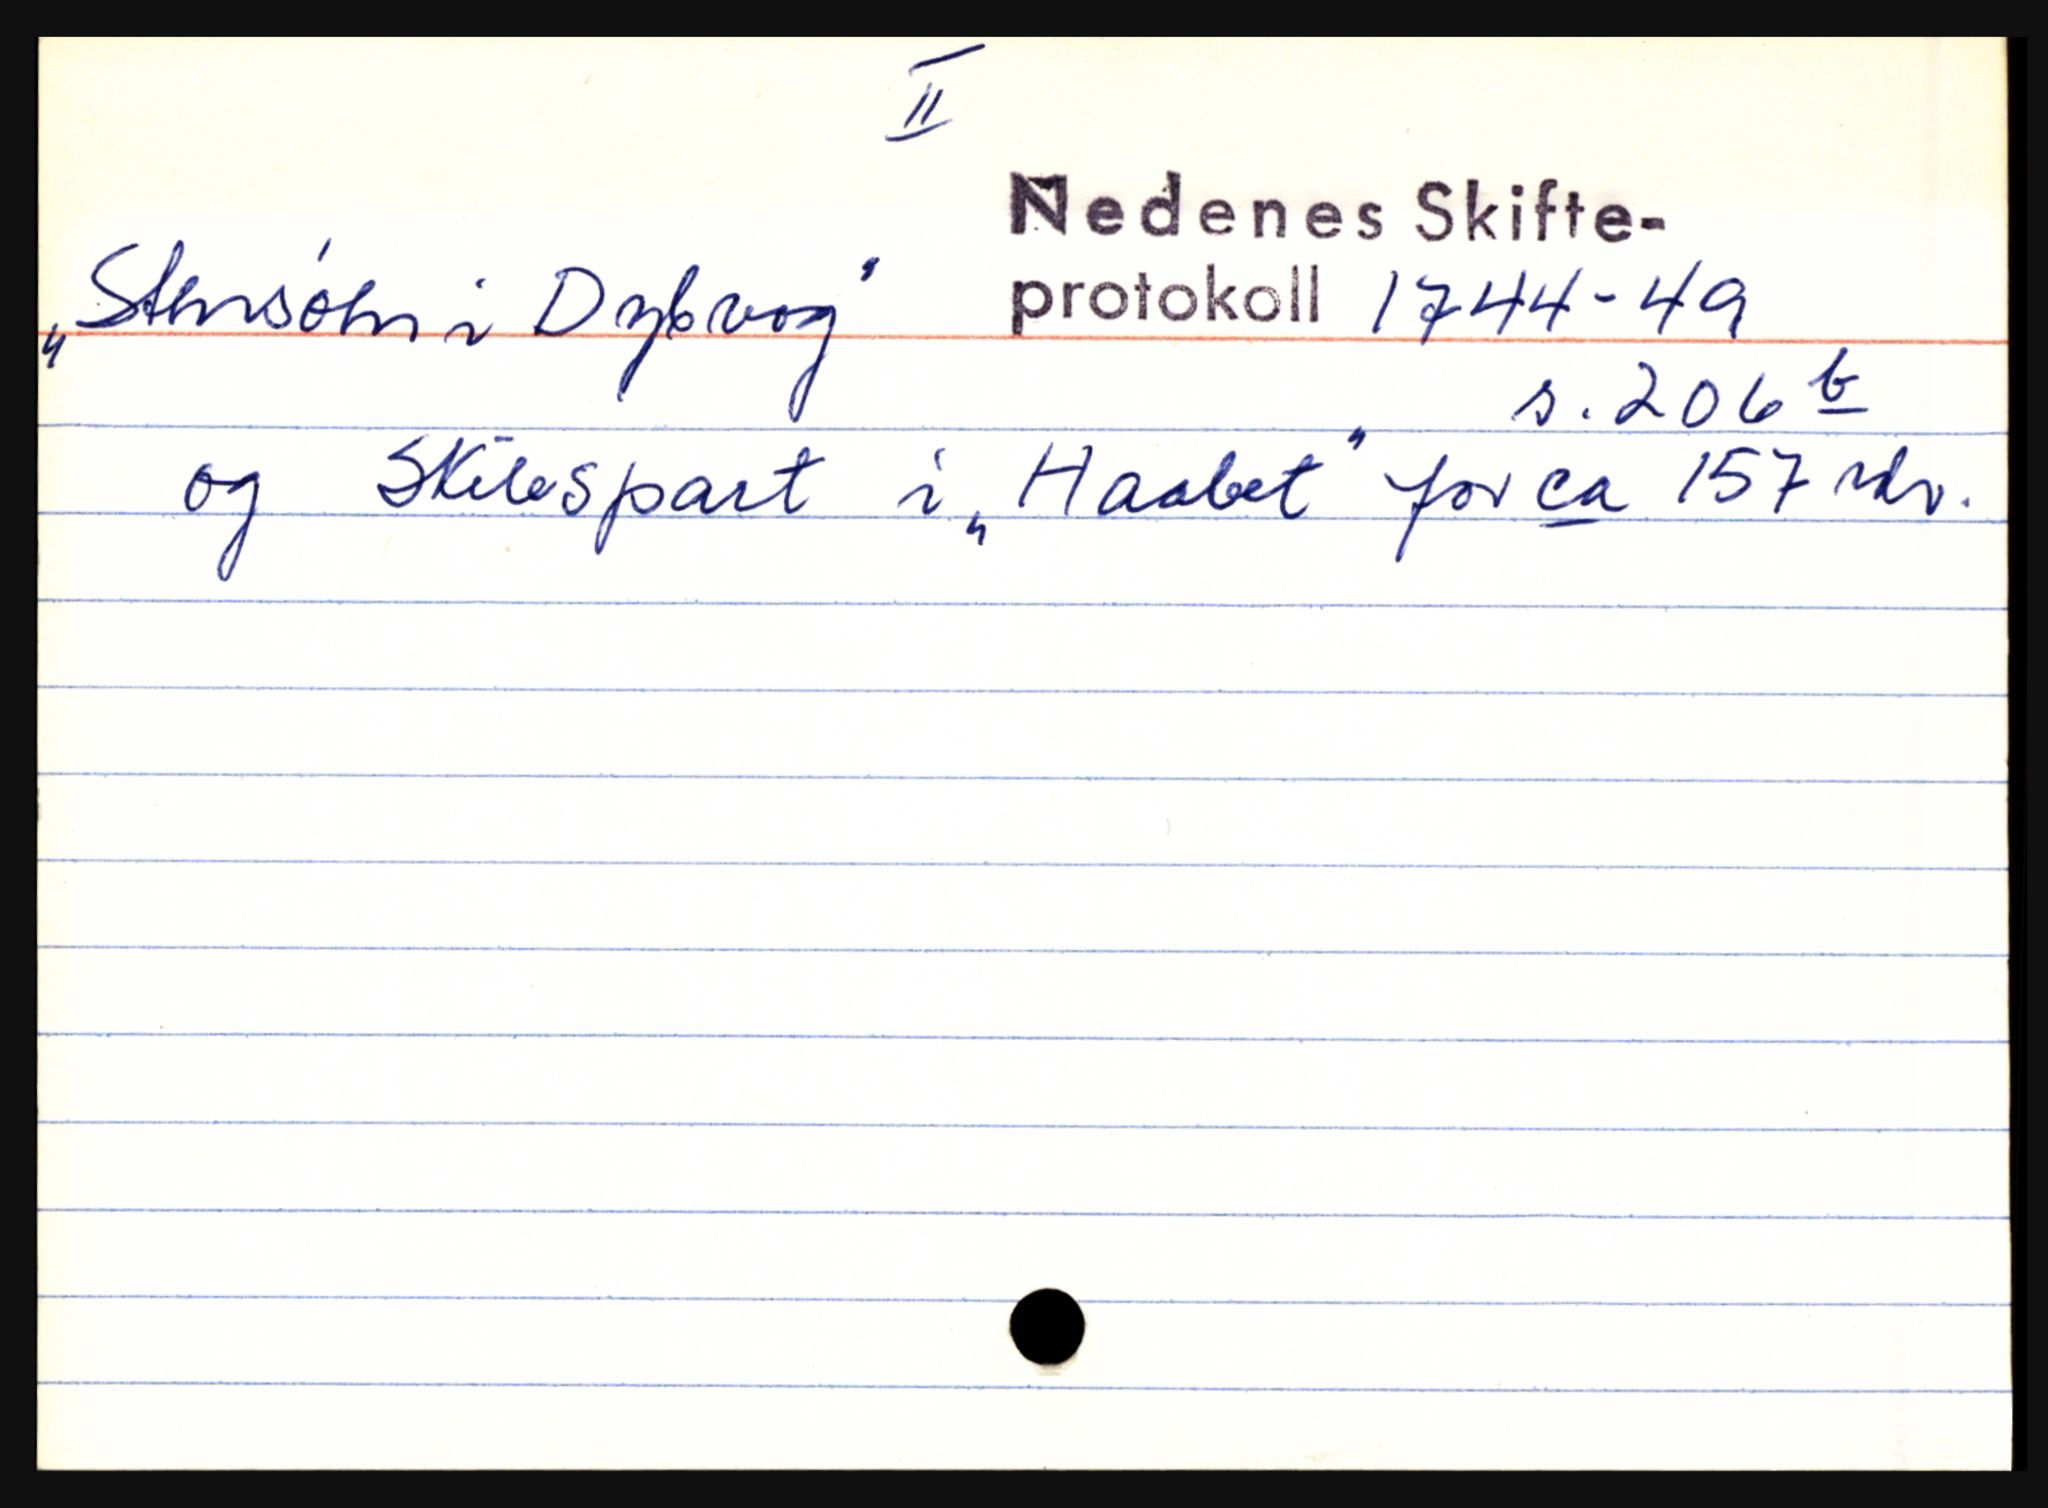 II
Nedenes Skifte-
protokoll 1744-49
„Stensóen i Dybvog"
s. 206 b
og Skibspart i „Haabet" for ca 157 rdr.